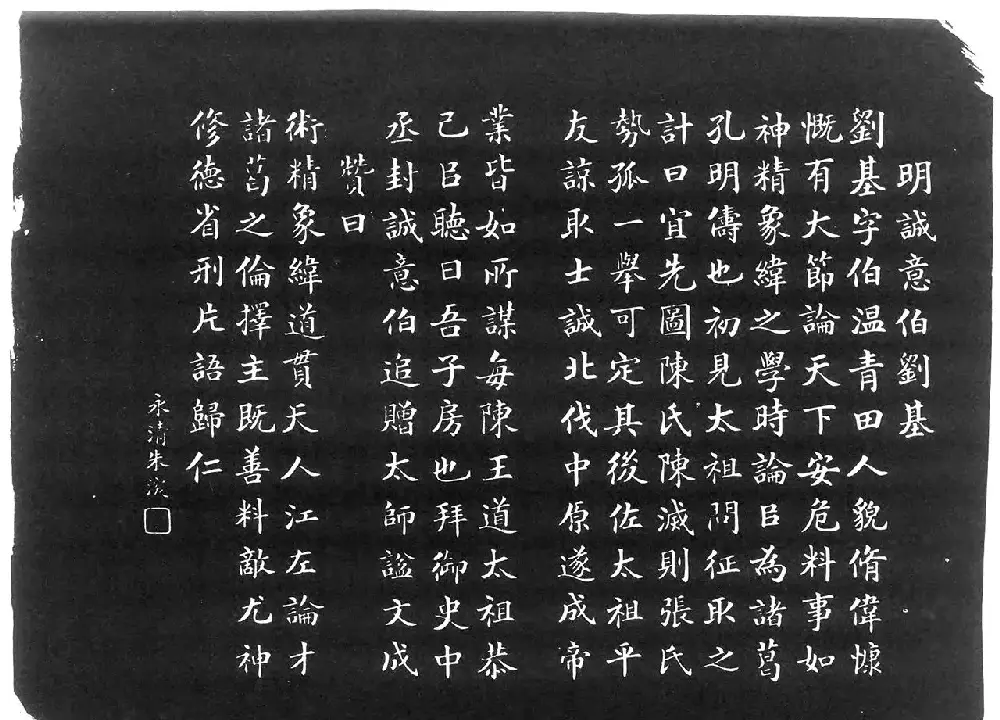 明誠意伯劉基
劉基字伯温青田人貌脩偉慷
慨有大節論天下安危料事如
神精象緯之學時論㠯為諸葛
孔明儔也初見太祖問征取之
計曰宜先圖陳氏陳滅則張氏
勢孤一舉可定其後佐太祖平
友諒取士誠北伐中原遂成帝
業皆如所謀每陳王道太祖恭
己㠯聽曰吾子房也拜御史中
丞封誠意伯追贈太師謚文成
贊曰
術精象緯道貫天人江左論才
諸葛之倫擇主既善料敵尤神
修德省刑片語歸仁
永清朱